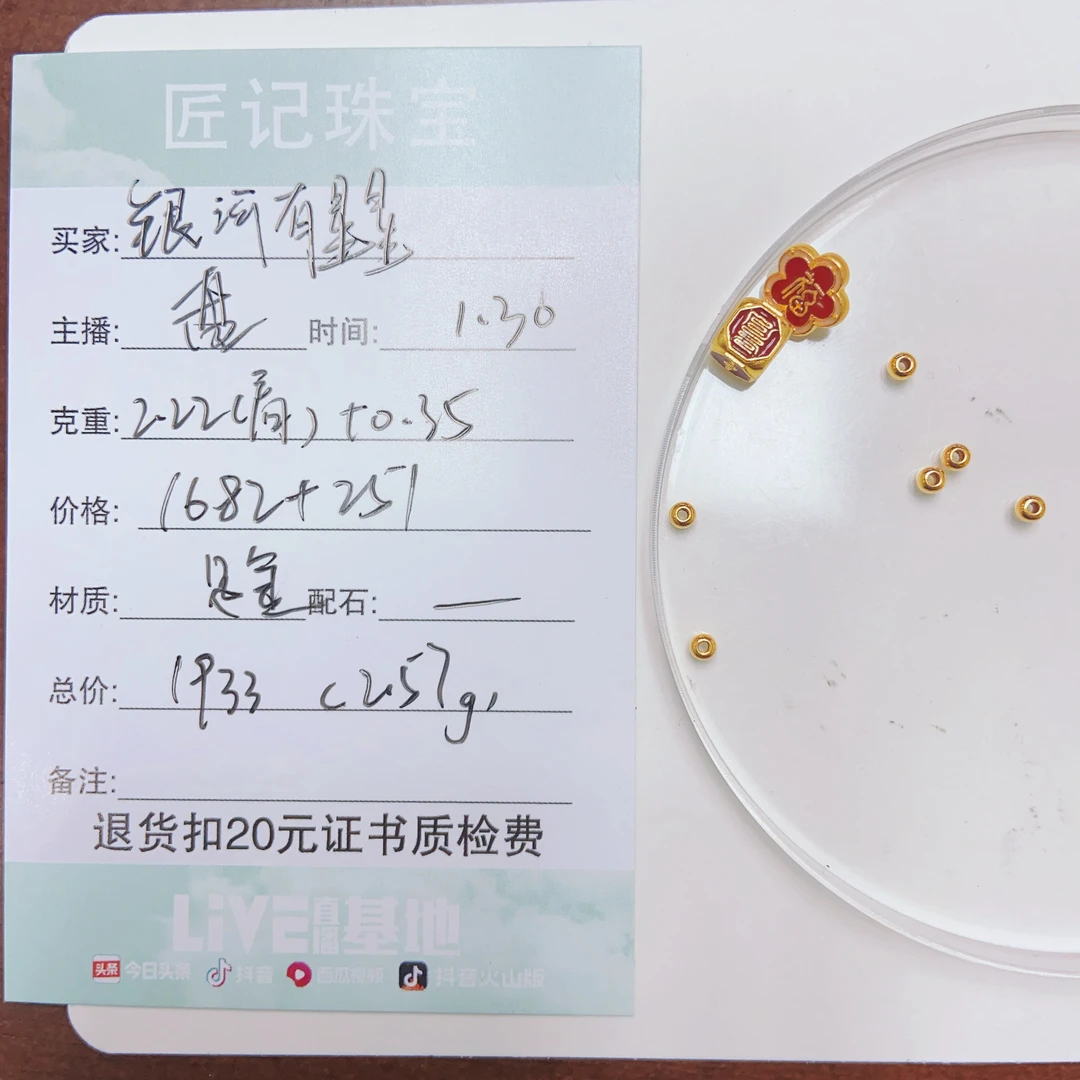 匠记珠宝
买家: 银河有星星
主播: 盘 时间: 1.30
克重: 2.22(有)+0.35
价格: 1682+251
材质: 足金 配石: —
总价: 1933 (2.57g)
备注:
退货扣20元证书质检费
LiVE直播基地
头条 今日头条 抖音 西瓜视频 抖音火山版
福